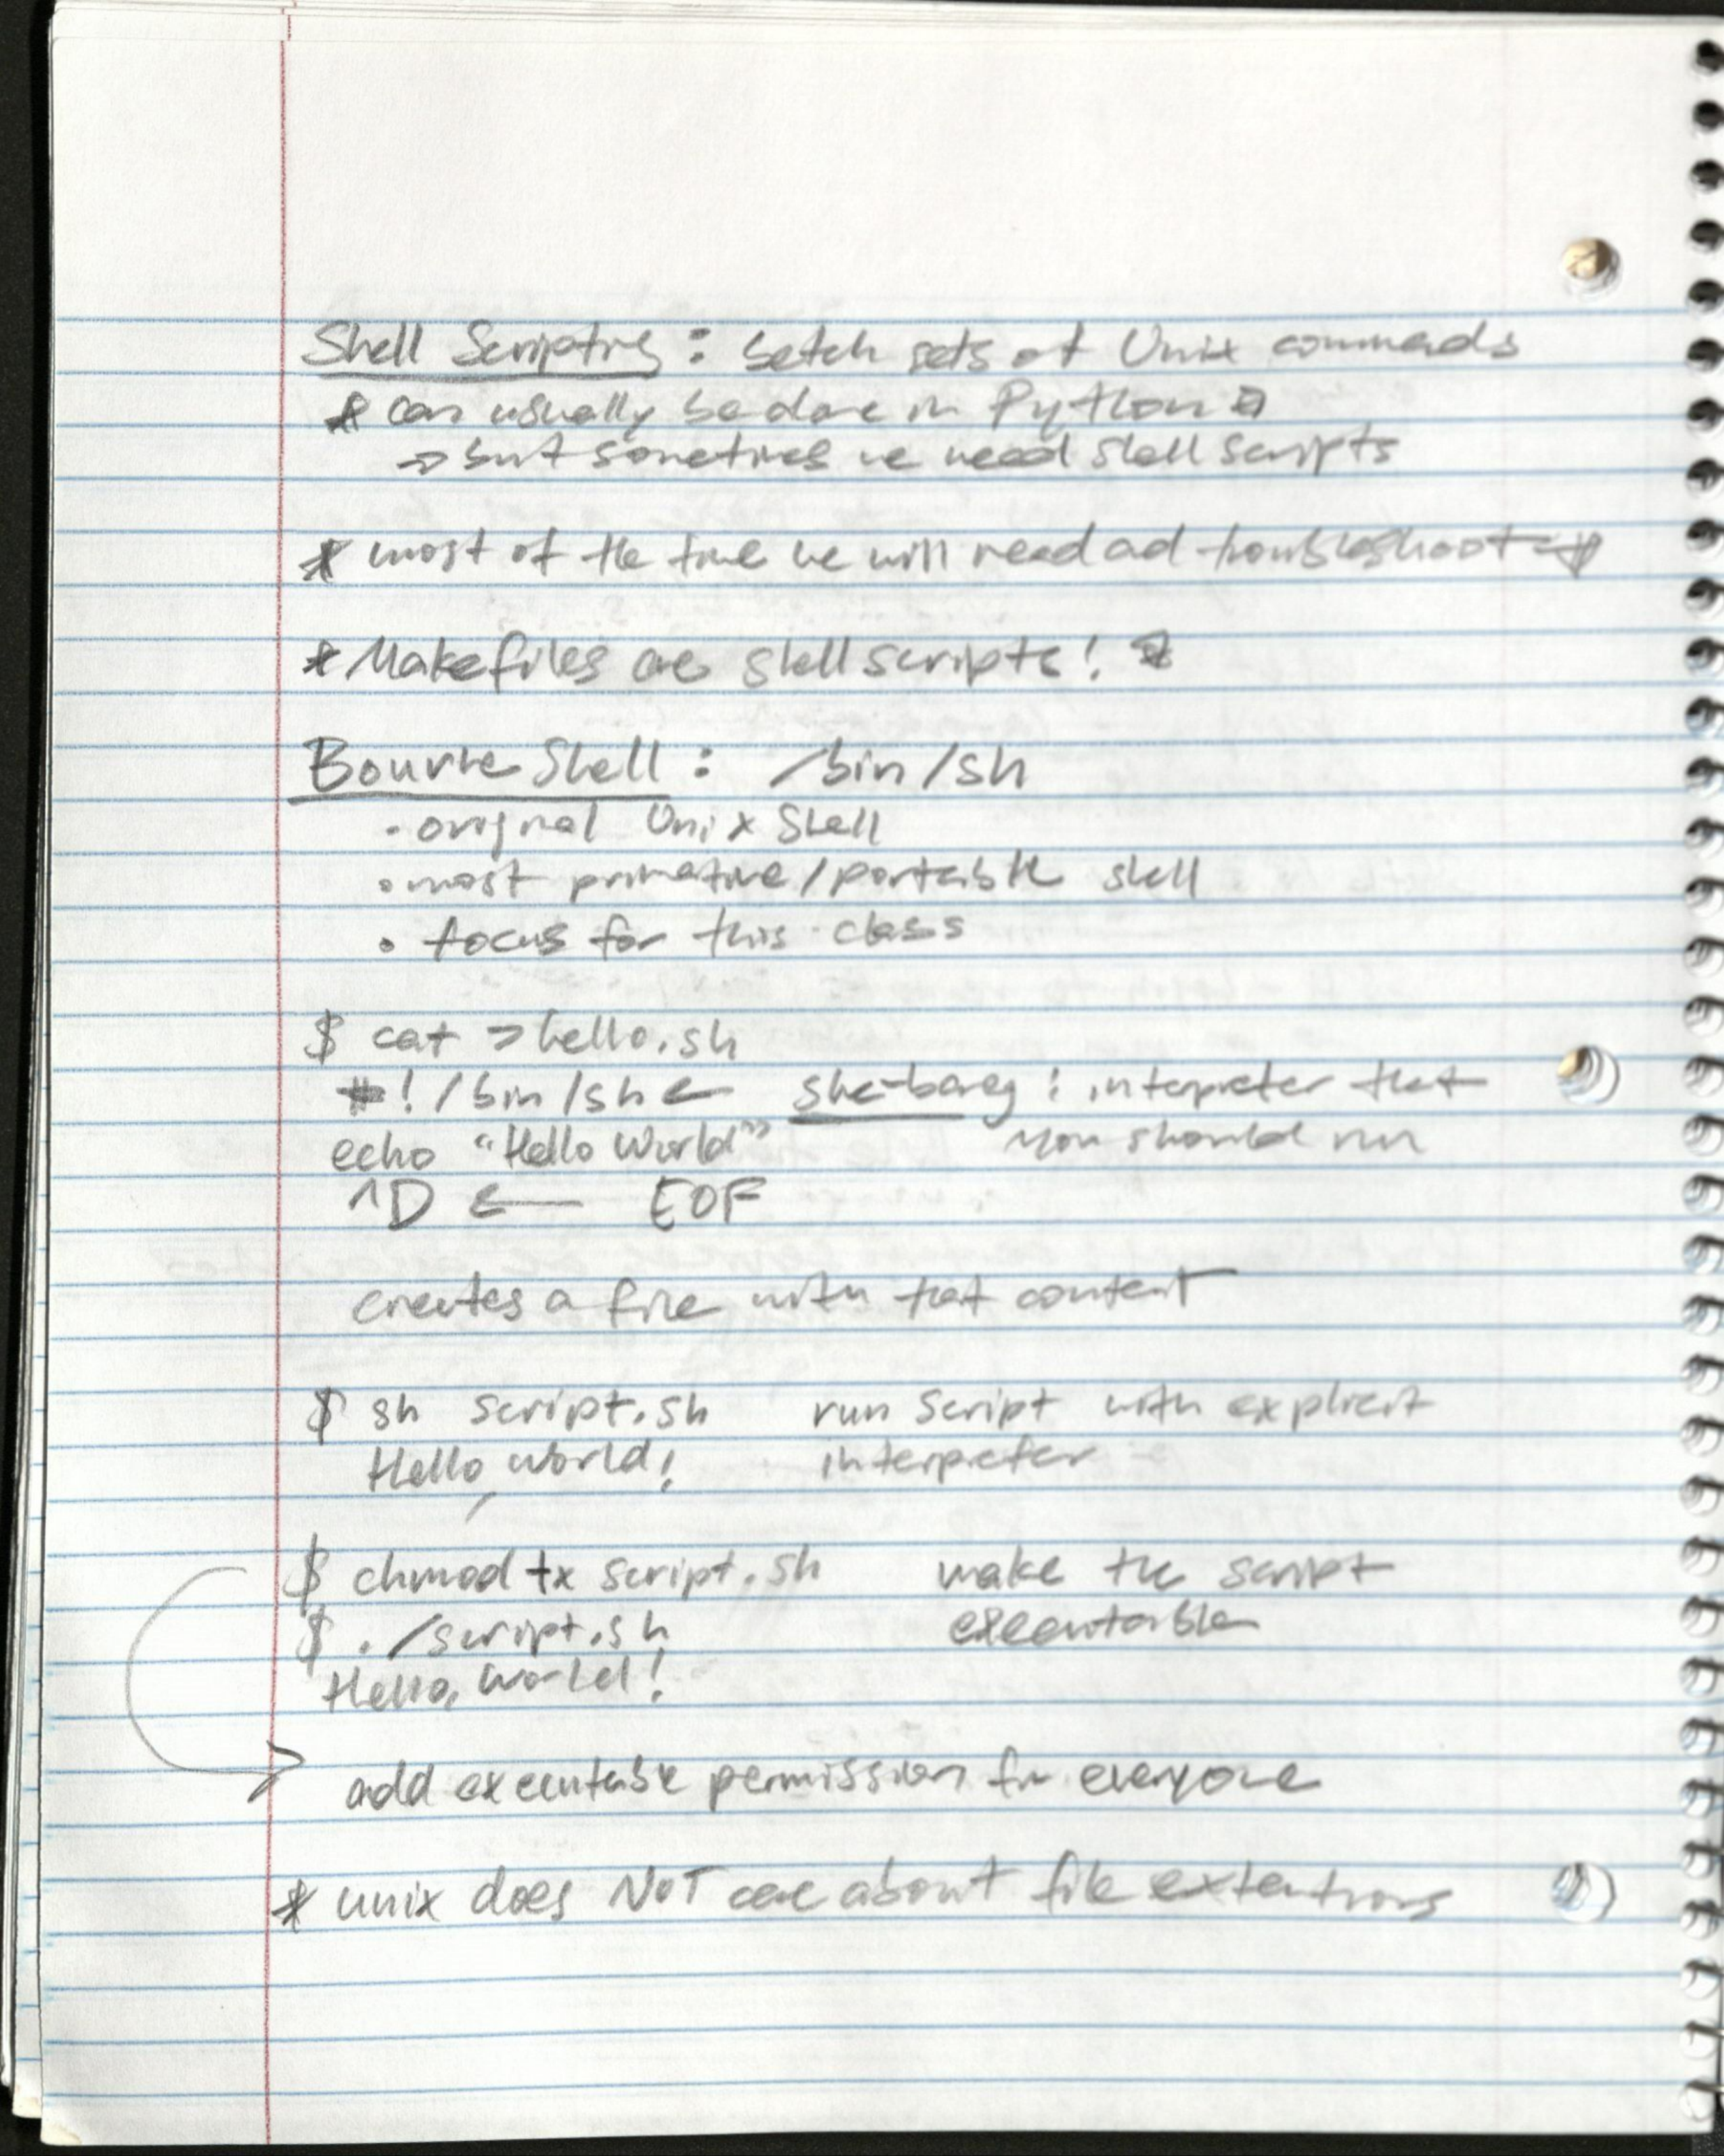 Shell Scripting : batch sets of Unix commands
* can usually be done in Python *
→ but sometimes we need shell scripts
* most of the time we will read and troubleshoot *
* Makefiles are shell scripts! *
Bourne Shell : /bin/sh
· original Unix Shell
· most primative/portable shell
· focus for this class
$ cat > hello.sh
#! /bin/sh ← she-bang : interpreter that
echo "Hello World" you should run
^D ← EOF
creates a file with that content
$ sh script.sh run script with explicit
Hello, world! interpreter
$ chmod +x script.sh make the script
$ ./script.sh executable
Hello, World!
→ add executable permission for everyone
* unix does NOT care about file extentions